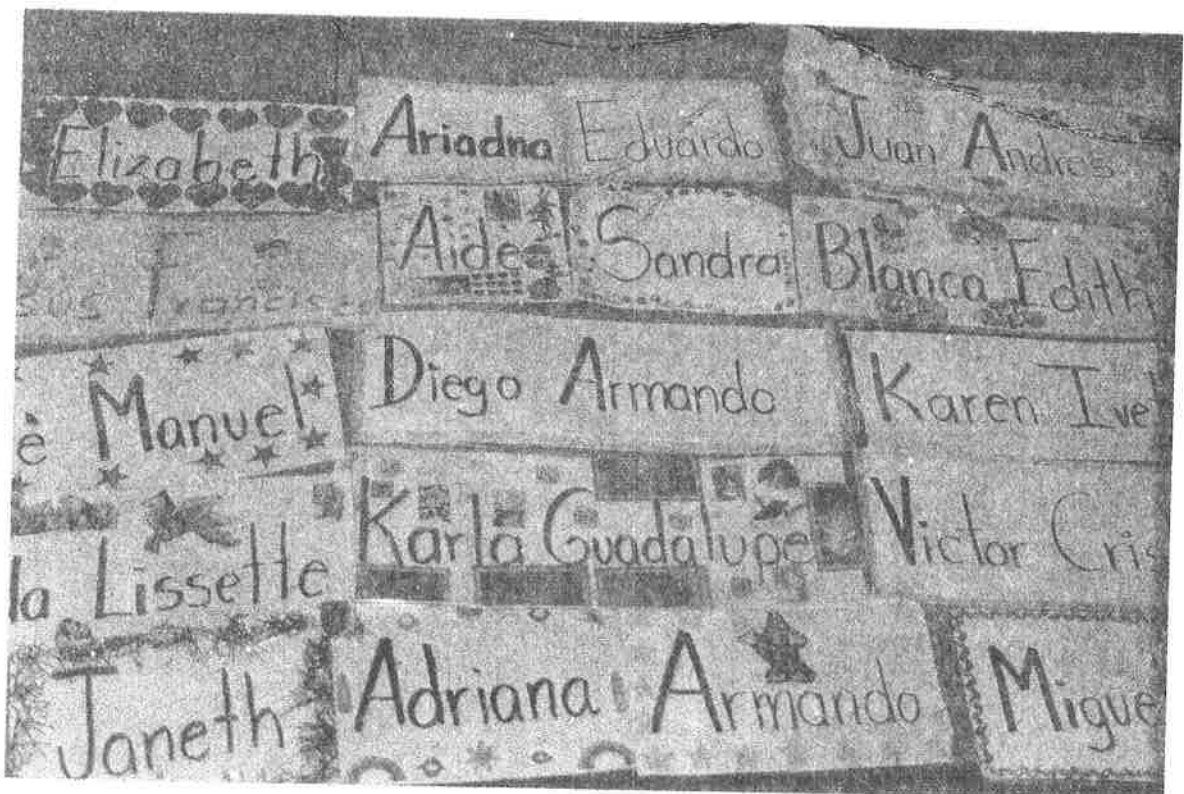 Elizabeth
Ariadna
Eduardo
Juan Andres
Francisc
Aide
Sandra
Blanca Edith
è Manuel
Diego Armando
Karen Ive
la Lissette
Karla Guadalupe
Victor Cris
Janeth
Adriana
Armando
Migue